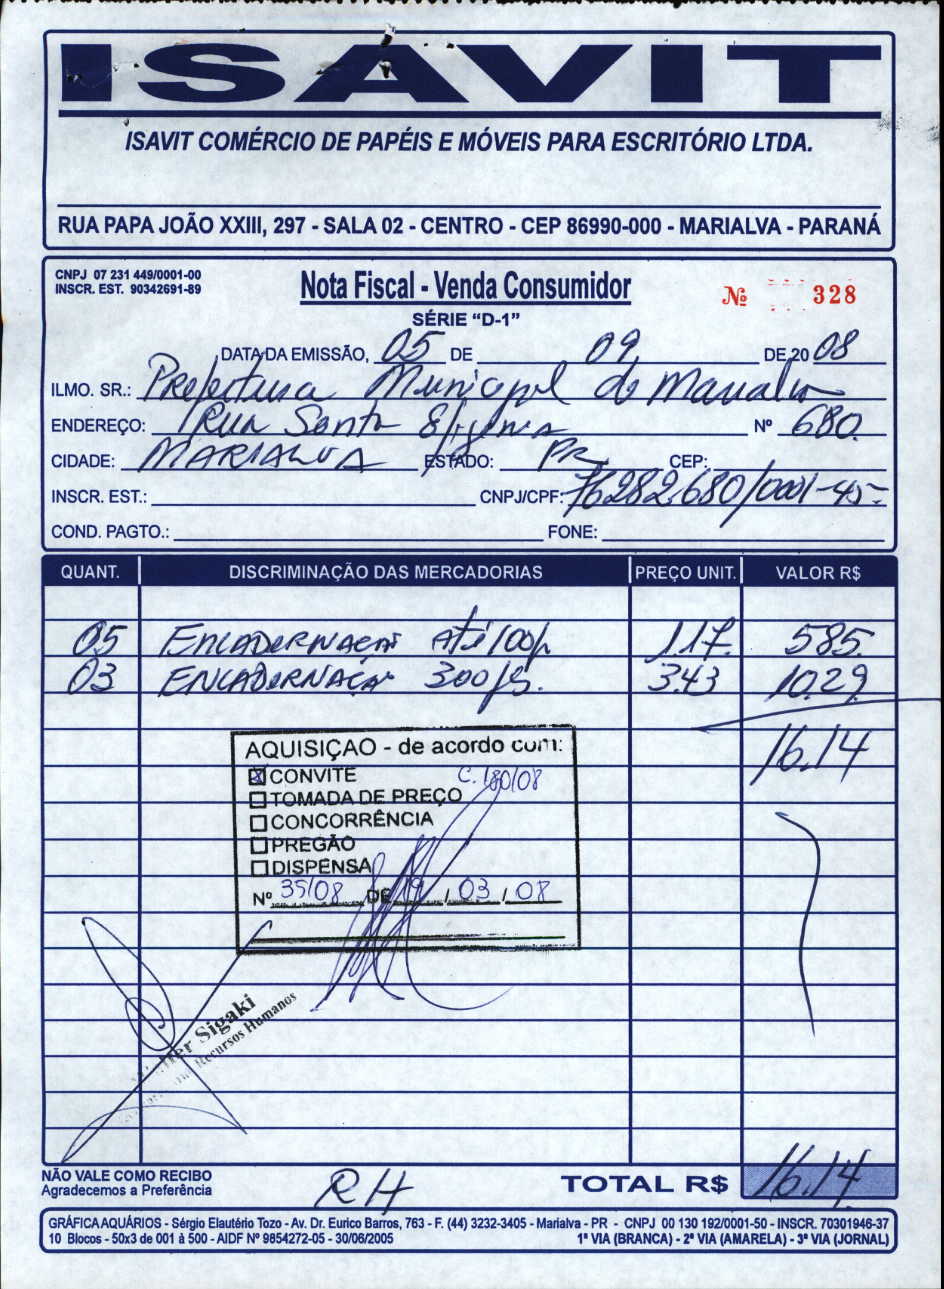 ISAVIT
ISAVIT COMÉRCIO DE PAPÉIS E MÓVEIS PARA ESCRITÓRIO LTDA.
RUA PAPA JOÃO XXIII, 297 - SALA 02 - CENTRO - CEP 86990-000 - MARIALVA - PARANÁ
CNPJ 07 231 449/0001-00
INSCR. EST. 90342691-89
Nota Fiscal - Venda Consumidor
SÉRIE "D-1"
Nº 328
DATA DA EMISSÃO, 05 DE 09 DE 20 08
ILMO. SR.: Prefeitura Municipal de Marialva
ENDEREÇO: Rua Santa Efigênia Nº 680
CIDADE: MARIALVA ESTADO: PR CEP:
INSCR. EST.: CNPJ/CPF: 76282680/0001-45
COND. PAGTO.: FONE:
QUANT. DISCRIMINAÇÃO DAS MERCADORIAS PREÇO UNIT. VALOR R$
05 ENCADERNAÇÃO Até 100f 1.17 5.85
03 ENCADERNAÇÃO 300fs. 3.43 10.29
16.14
AQUISIÇÃO - de acordo com:
☒ CONVITE C. 180/08
☐ TOMADA DE PREÇO
☐ CONCORRÊNCIA
☐ PREGÃO
☐ DISPENSA
Nº 35/08 DE 19 / 03 / 08
Sigaki
Recursos Humanos
NÃO VALE COMO RECIBO
Agradecemos a Preferência
RH
TOTAL R$ 16.14
GRÁFICA AQUÁRIOS - Sérgio Elautério Tozo - Av. Dr. Eurico Barros, 763 - F. (44) 3232-3405 - Marialva - PR - CNPJ 00 130 192/0001-50 - INSCR. 70301946-37
10 Blocos - 50x3 de 001 à 500 - AIDF Nº 9854272-05 - 30/06/2005 1ª VIA (BRANCA) - 2ª VIA (AMARELA) - 3ª VIA (JORNAL)